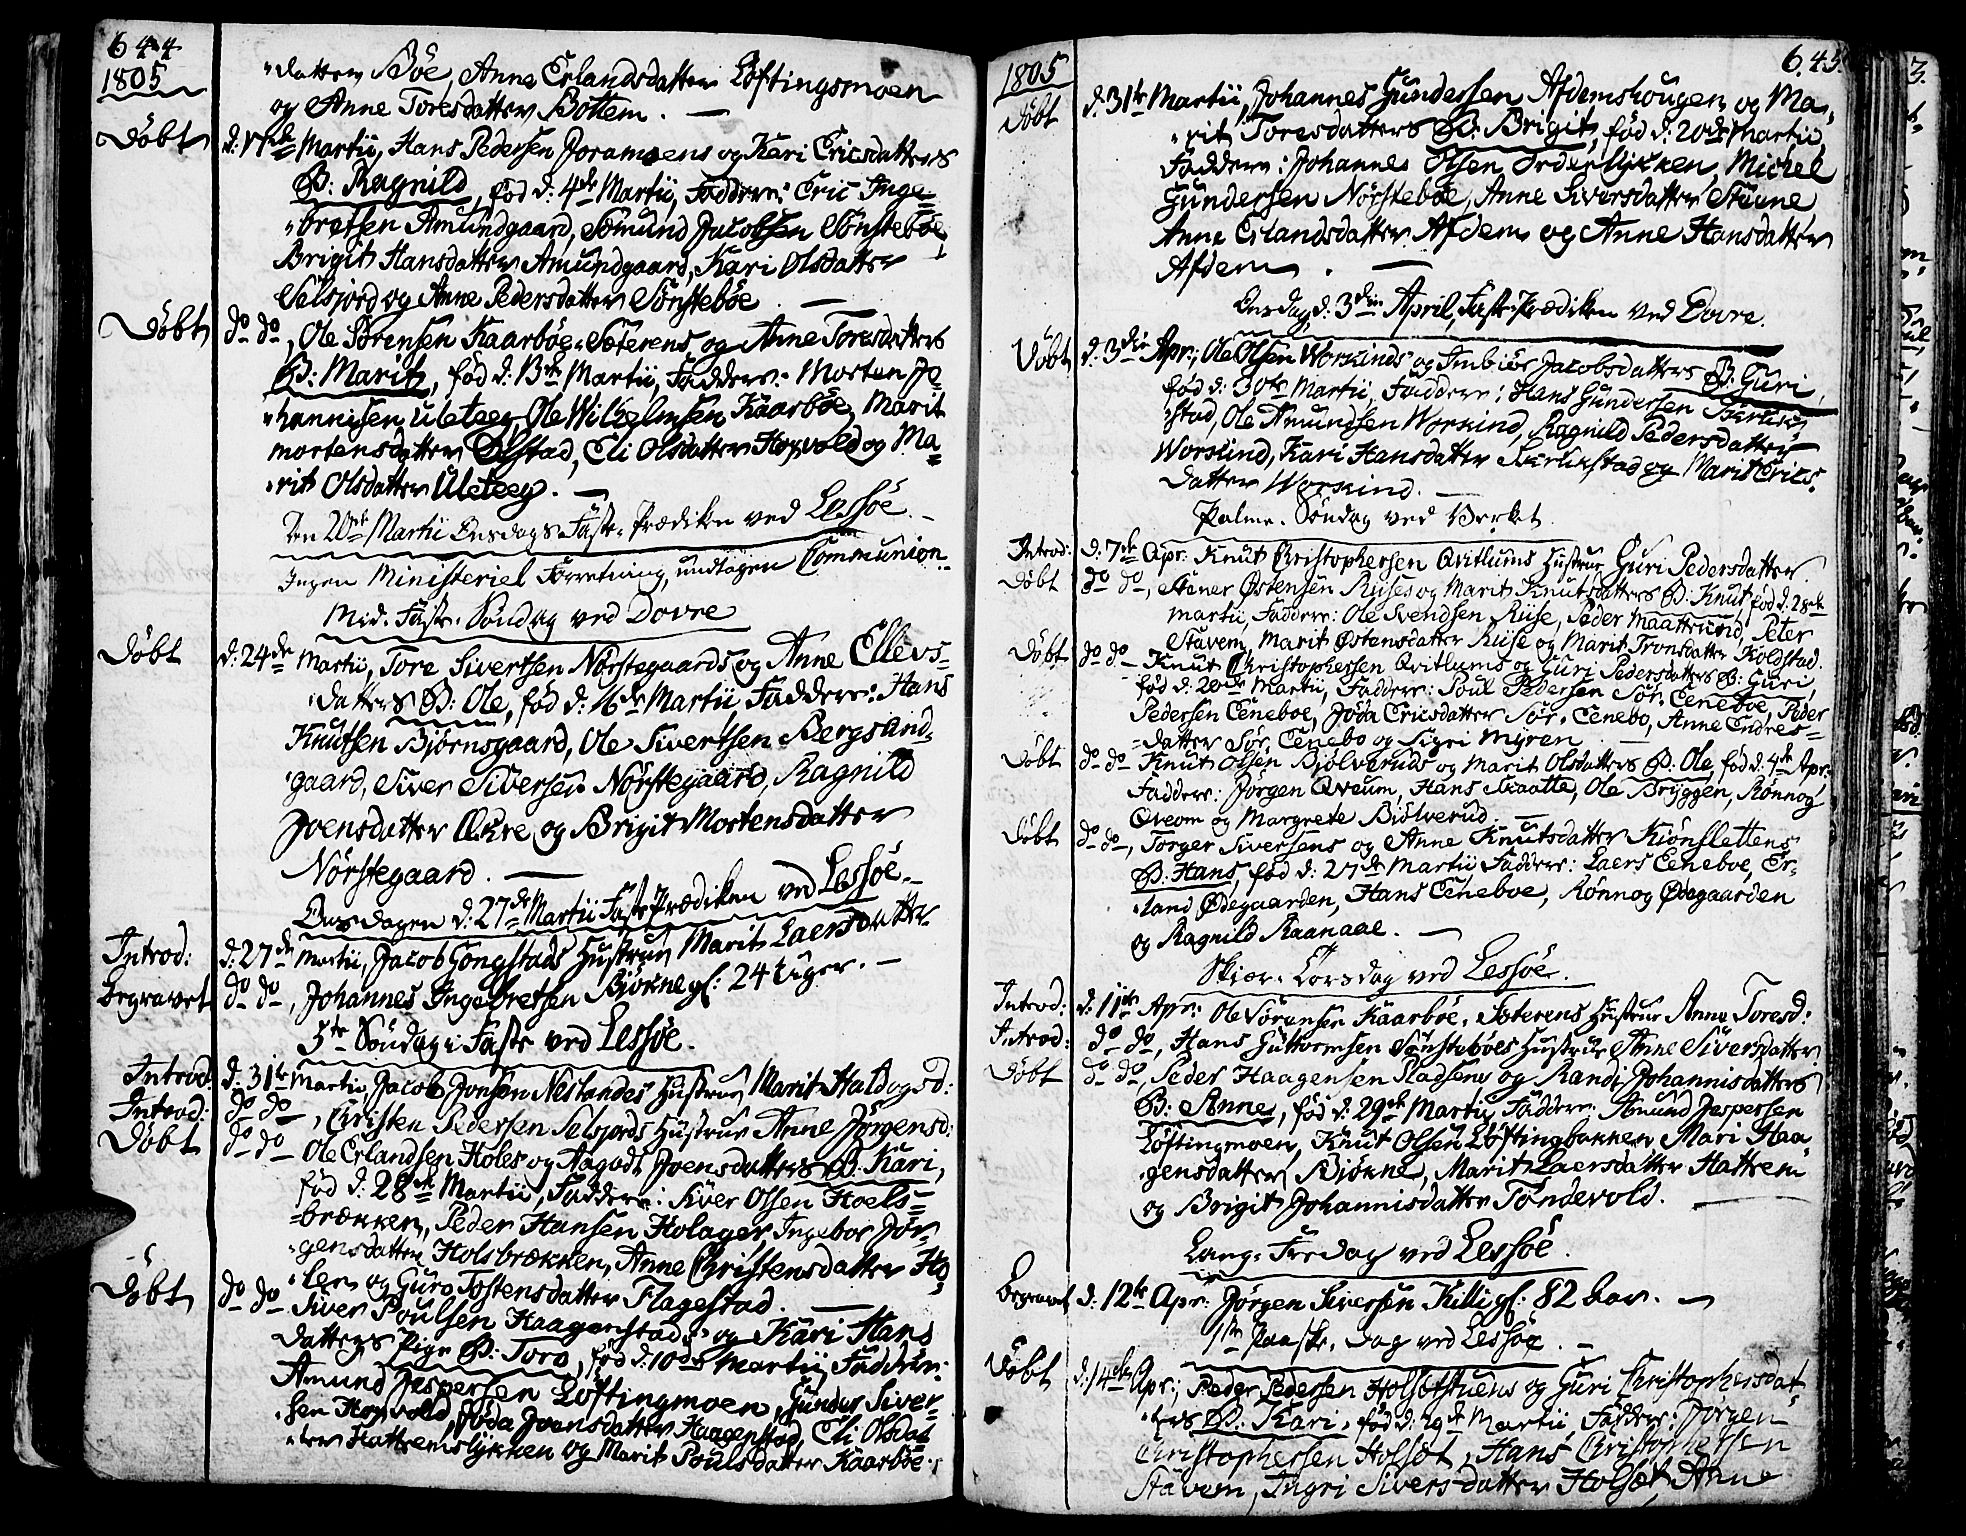 644
1805
"datter Böe, Anne Erlandsdatter Löftingsmoen
og Anne Toresdatter Bottem. —
Döbt d: 17de Martii, Hans Pedersen Joramoens og Kari Ericsdatters
B: Ragnild, föd d: 4de Martii, Faddere: Eric Inge=
"bretsen Amundgaard, Amund Jacobsen Sönsteböe,
Brigit Hansdatter Amundgaard, Kari Olsdatter
Selsjord og Anne Pedersdatter Sönsteböe. —
Döbt do do, Ole Sörensen Kaarböe-Söterens og Anne Toresdatters
B: Marit, föd d: 13de Martii, Faddere: Morten Jo=
"hannisen Uleteey, Ole Wilhelmsen Kaarböe, Marit
Mortensdatter Ølstad, Eli Olsdatter Hogvold og Ma=
"rit Olsdatter Uleteey. —
Den 20de Martii Onsdags Faste-Prædiken ved Lessöe. —
Ingen Ministeriel Forretning, undtagen Communion.
Mid-Faste-Söndag ved Dovre
Döbt d: 24de Martii, Tore Sivertsen Nörstegaards og Anne Ellevs=
"datters B: Ole, föd d: 16de Martii, Faddere: Hans
Knutsen Bjørnsgaard, Ole Sivertsen Bergseind=
"gaard, Siver Siversen Nörstegaard, Ragnild
Joensdatter Økre og Brigit Mortensdatter
Nörstegaard. —
Onsdagen d: 27de Martii Faste-Prædiken ved Lessöe. —
Introd: d: 27de Martii, Jacob Gongstads Hustrue Marit Laersdatter
Begravet do do, Johannes Ingebretsen Bjökne gl: 24 Uger. —
5te Söndag i Faste ved Lessöe.
Introd: d: 31te Martii, Jacob Jonsen Neslandes Hustrue Marit Haldogsd:
Introd: do do, Christen Pedersen Selsjords Hustrue Anne Jörgensd:
Döbt do do Ole Erlandsen Holes og Aagodt Joensdatters B: Kari,
föd d: 28de Martii, Faddere: Siver Olsen Hoels=
=brækken, Peder Hansen Holager, Ingebor Jör=
"gensdatter Holsbrækken, Anne Christensdatter Ho=
"len og Guro Tostensdatter Flagestad. —
Döbt do do Siver Poulsen Haagenstads og Kari Hans
datters Pige B: Toro, föd d: 10de Martii, Faddere:
Amund Jespersen Löftingmoen, Gunder Siver=
"sen Hogvold, Jöda Joensdatter Haagenstad, Eli Olsdat
"ter Hattremslykken og Marit Poulsdatter Kaarböe.
1805
645.
Döbt d: 31te Martii, Johannes Gundersen Afdemshougen og Ma=
"rit Toresdatters B: Brigit, föd d: 20de Martii,
Faddere: Johannes Olsen Orderlykken, Michel
Gundersen Nörsteböe, Anne Siversdatter Stuene
Anne Erlandsdatter Afdem og Anne Hansdatter
Afdem. —
Onsdag d: 3die April, Faste-Prædiken ved Dovre.
Döbt d: 3die Apr:, Ole Olsen Workinds og Imbiör Jacobsdatters B: Guri,
föd d: 30te Martii, Faddere: Hans Gundersen
stad, Ole Amundsen Workind, Ragnild Pedersdatter
Workind, Kari Hansdatter og Marit Erics=
datter Workind. —
Palme-Söndag ved Verket.
Introd: d: 7de Apr: Knut Christophersen Qvitlums Hustrue Guri Pedersdatter.
Döbt do do, Stener Østensen Ruses og Marit Knutsdatters B: Knut, föd d: 28de
Martii, Faddere: Ole Svendsen Ruse, Peder Maattrund, Peter
Stavem, Marit Østensdatter Ruse og Marit Tronsdatter Koldstad.
Döbt do do — Knut Christophersen Qvitlums og Guri Pedersdatters B: Guri,
föd d: 20de Martii, Faddere: Poul Pedersen Sör-Eeneboe, Peder
Pedersen Eeneboe, Jöda Ericsdatter Sör-Eenebo, Anne Endres=
=datter Sör-Eenebo og Sigri Myren —
Döbt do do — Knut Olsen Bjölveruds og Marit Olsdatters B: Ole, föd d: 4de Apr:
Faddere: Jörgen Qveum, Hans Skaatte, Ole Bryggen, Rönnog
Qveom og Margrete Bjölverud. —
Döbt do do —, Torger Siversens og Anne Knutsdatter Kiönslettens
B: Hans, föd d: 27de Martii Faddere: Laers Eeneboe, Er=
"land Ødegaarden, Hans Eeneboe, Rönnog Ødegaarden
og Ragnild Raanaae. —
Skiær-Torsdag ved Lessöe.
Introd: d: 11te Apr: Ole Sörensen Kaarböe-Söterens Hustrue Anne Toresd:
Introd: do do, Hans Guttormsen Sönsteböes Hustrue Anne Siversdatter
Döbt do do, Peder Haagensen Pladsens og Randi Johannisdatters
B: Anne, föd d: 29de Martii, Faddere: Amund Jespersen
Löftingmoen, Knut Olsen Löftingbakken, Mari Haa=
"gensdatter Bjökne, Marit Laersdatter Hattrem
og Brigit Johannisdatter Töndevold. —
Lang-Fredag ved Lessöe.
Begravet d: 12te Apr: Jörgen Siversen Killi gl: 82 Aar. —
1ste Paaske-Dag ved Lessöe. —
Döbt d: 14de Apr:, Peder Pedersen Holsetstuens og Guri Christophersdat=
"ters B: Kari, föd d: 29de Martii, Faddere: Jörgen
Christophersen Holset, Hans Christophersen
Stavem, Ingri Siversdatter Holset, Anne